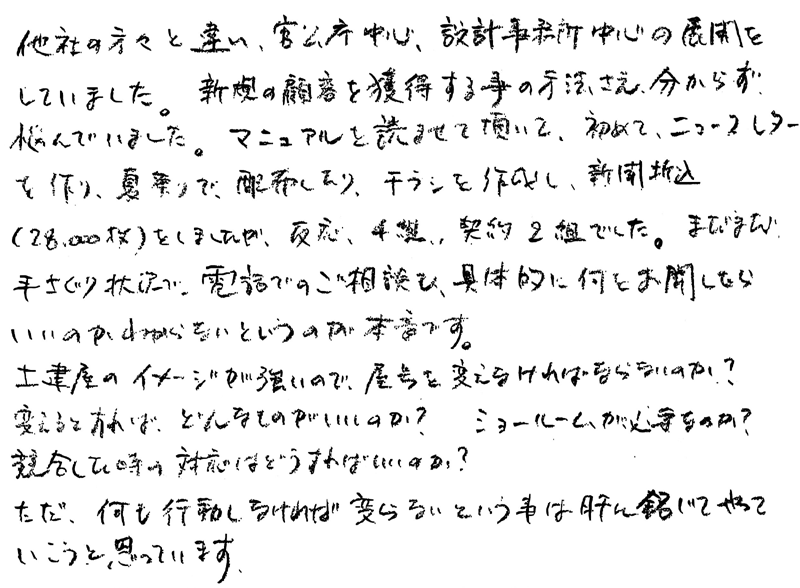 他社の方々と違い、官公庁中心、設計事務所中心の展開を
していました。新規の顧客を獲得する事の方法さえ、分からず、
悩んでいました。マニュアルを読ませて頂いて、初めて、ニュースレター
を作り、夏祭りで、配布したり、チラシを作成し、新聞折込
(28,000枚)をしましたが、反応、4組、契約2組でした。まだまだ、
手さぐり状況で、電話でのご相談も、具体的に何をお聞したら
いいのかわからないというのが本音です。
土建屋のイメージが強いので、屋号を変えなければならないのか?
変えるとすれば、どんなものがいいのか? ショールームが必要なのか?
競合した時の対応はどうすればいいのか?
ただ、何も行動しなければ変らないという事は肝に銘じてやって
いこうと、思っています。